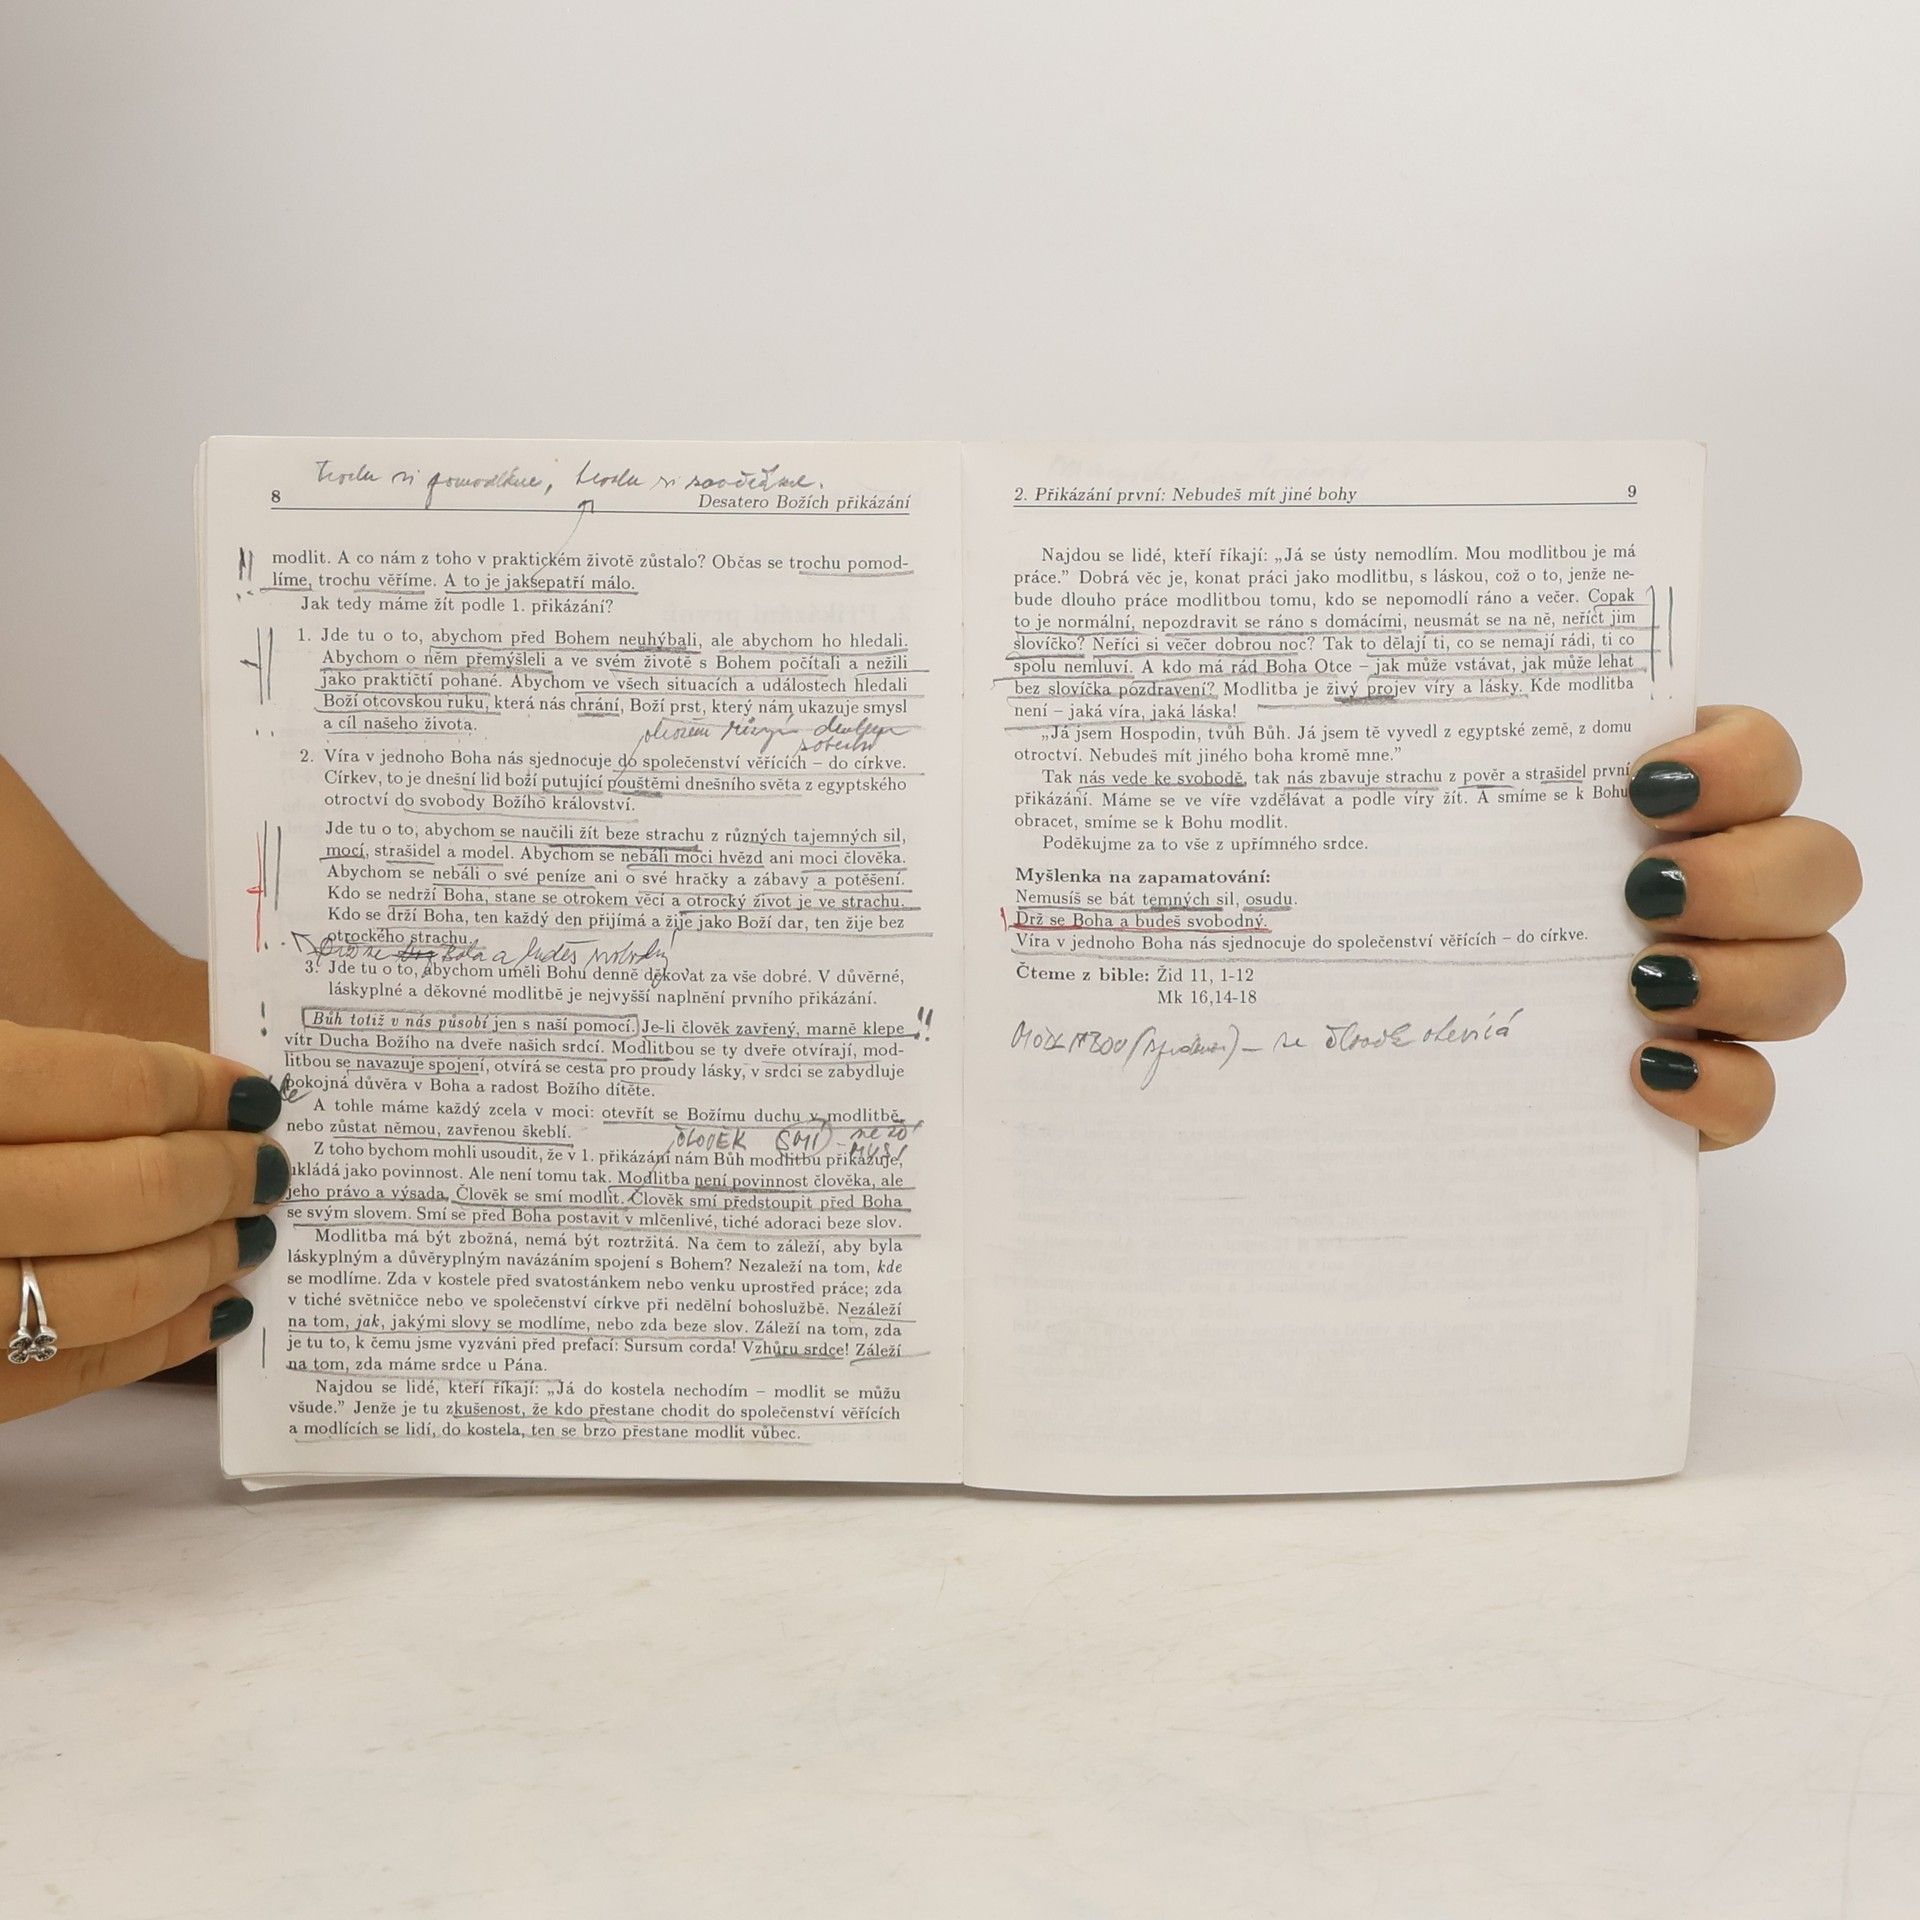 trochu si pomodlíme, trochu si
8 Desatero Božích přikázání
modlit. A co nám z toho v praktickém životě zůstalo? Občas se trochu pomod-
líme, trochu věříme. A to je jaksepatří málo.
Jak tedy máme žít podle 1. přikázání?
1. Jde tu o to, abychom před Bohem neuhýbali, ale abychom ho hledali.
Abychom o něm přemýšleli a ve svém životě s Bohem počítali a nežili
jako praktičtí pohané. Abychom ve všech situacích a událostech hledali
Boží otcovskou ruku, která nás chrání, Boží prst, který nám ukazuje smysl
a cíl našeho života.
2. Víra v jednoho Boha nás sjednocuje do společenství věřících – do církve.
Církev, to je dnešní lid boží putující pouštěmi dnešního světa z egyptského
otroctví do svobody Božího království.
Jde tu o to, abychom se naučili žít beze strachu z různých tajemných sil,
mocí, strašidel a model. Abychom se nebáli moci hvězd ani moci člověka.
Abychom se nebáli o své peníze ani o své hračky a zábavy a potěšení.
Kdo se nedrží Boha, stane se otrokem věcí a otrocký život je ve strachu.
Kdo se drží Boha, ten každý den přijímá a žije jako Boží dar, ten žije bez
otrockého strachu.
Drž se Boha a budeš svobodný!
3. Jde tu o to, abychom uměli Bohu denně děkovat za vše dobré. V důvěrné,
láskyplné a děkovné modlitbě je nejvyšší naplnění prvního přikázání.
Bůh totiž v nás působí jen s naší pomocí. Je-li člověk zavřený, marně klepe !!
vítr Ducha Božího na dveře našich srdcí. Modlitbou se ty dveře otvírají, mod-
litbou se navazuje spojení, otvírá se cesta pro proudy lásky, v srdci se zabydluje
pokojná důvěra v Boha a radost Božího dítěte.
A tohle máme každý zcela v moci: otevřít se Božímu duchu v modlitbě,
nebo zůstat němou, zavřenou škeblí.
ČLOVĚK SMÍ
Z toho bychom mohli usoudit, že v 1. přikázání nám Bůh modlitbu přikazuje,
ukládá jako povinnost. Ale není tomu tak. Modlitba není povinnost člověka, ale
jeho právo a výsada. Člověk se smí modlit. Člověk smí předstoupit před Boha
se svým slovem. Smí se před Boha postavit v mlčenlivé, tiché adoraci beze slov.
Modlitba má být zbožná, nemá být roztržitá. Na čem to záleží, aby byla
láskyplným a důvěryplným navázáním spojení s Bohem? Nezaleží na tom, kde
se modlíme. Zda v kostele před svatostánkem nebo venku uprostřed práce; zda
v tiché světničce nebo ve společenství církve při nedělní bohoslužbě. Nezáleží
na tom, jak, jakými slovy se modlíme, nebo zda beze slov. Záleží na tom, zda
je tu to, k čemu jsme vyzváni před prefací: Sursum corda! Vzhůru srdce! Záleží
na tom, zda máme srdce u Pána.
Najdou se lidé, kteří říkají: „Já do kostela nechodím – modlit se můžu
všude.” Jenže je tu zkušenost, že kdo přestane chodit do společenství věřících
a modlících se lidí, do kostela, ten se brzo přestane modlit vůbec.
2. Přikázání první: Nebudeš mít jiné bohy 9
Najdou se lidé, kteří říkají: „Já se ústy nemodlím. Mou modlitbou je má
práce.” Dobrá věc je, konat práci jako modlitbu, s láskou, což o to, jenže ne-
bude dlouho práce modlitbou tomu, kdo se nepomodlí ráno a večer. Copak
to je normální, nepozdravit se ráno s domácími, neusmát se na ně, neříct jim
slovíčko? Neříci si večer dobrou noc? Tak to dělají ti, co se nemají rádi, ti co
spolu nemluví. A kdo má rád Boha Otce – jak může vstávat, jak může lehat
bez slovíčka pozdravení? Modlitba je živý projev víry a lásky. Kde modlitba
není – jaká víra, jaká láska!
„Já jsem Hospodin, tvůh Bůh. Já jsem tě vyvedl z egyptské země, z domu
otroctví. Nebudeš mít jiného boha kromě mne.”
Tak nás vede ke svobodě, tak nás zbavuje strachu z pověr a strašidel první
přikázání. Máme se ve víře vzdělávat a podle víry žít. A smíme se k Bohu
obracet, smíme se k Bohu modlit.
Poděkujme za to vše z upřímného srdce.
Myšlenka na zapamatování:
Nemusíš se bát temných sil, osudu.
Drž se Boha a budeš svobodný.
Víra v jednoho Boha nás sjednocuje do společenství věřících – do církve.
Čteme z bible: Žid 11, 1-12
Mk 16,14-18
MODLITBOU – se člověk otevírá